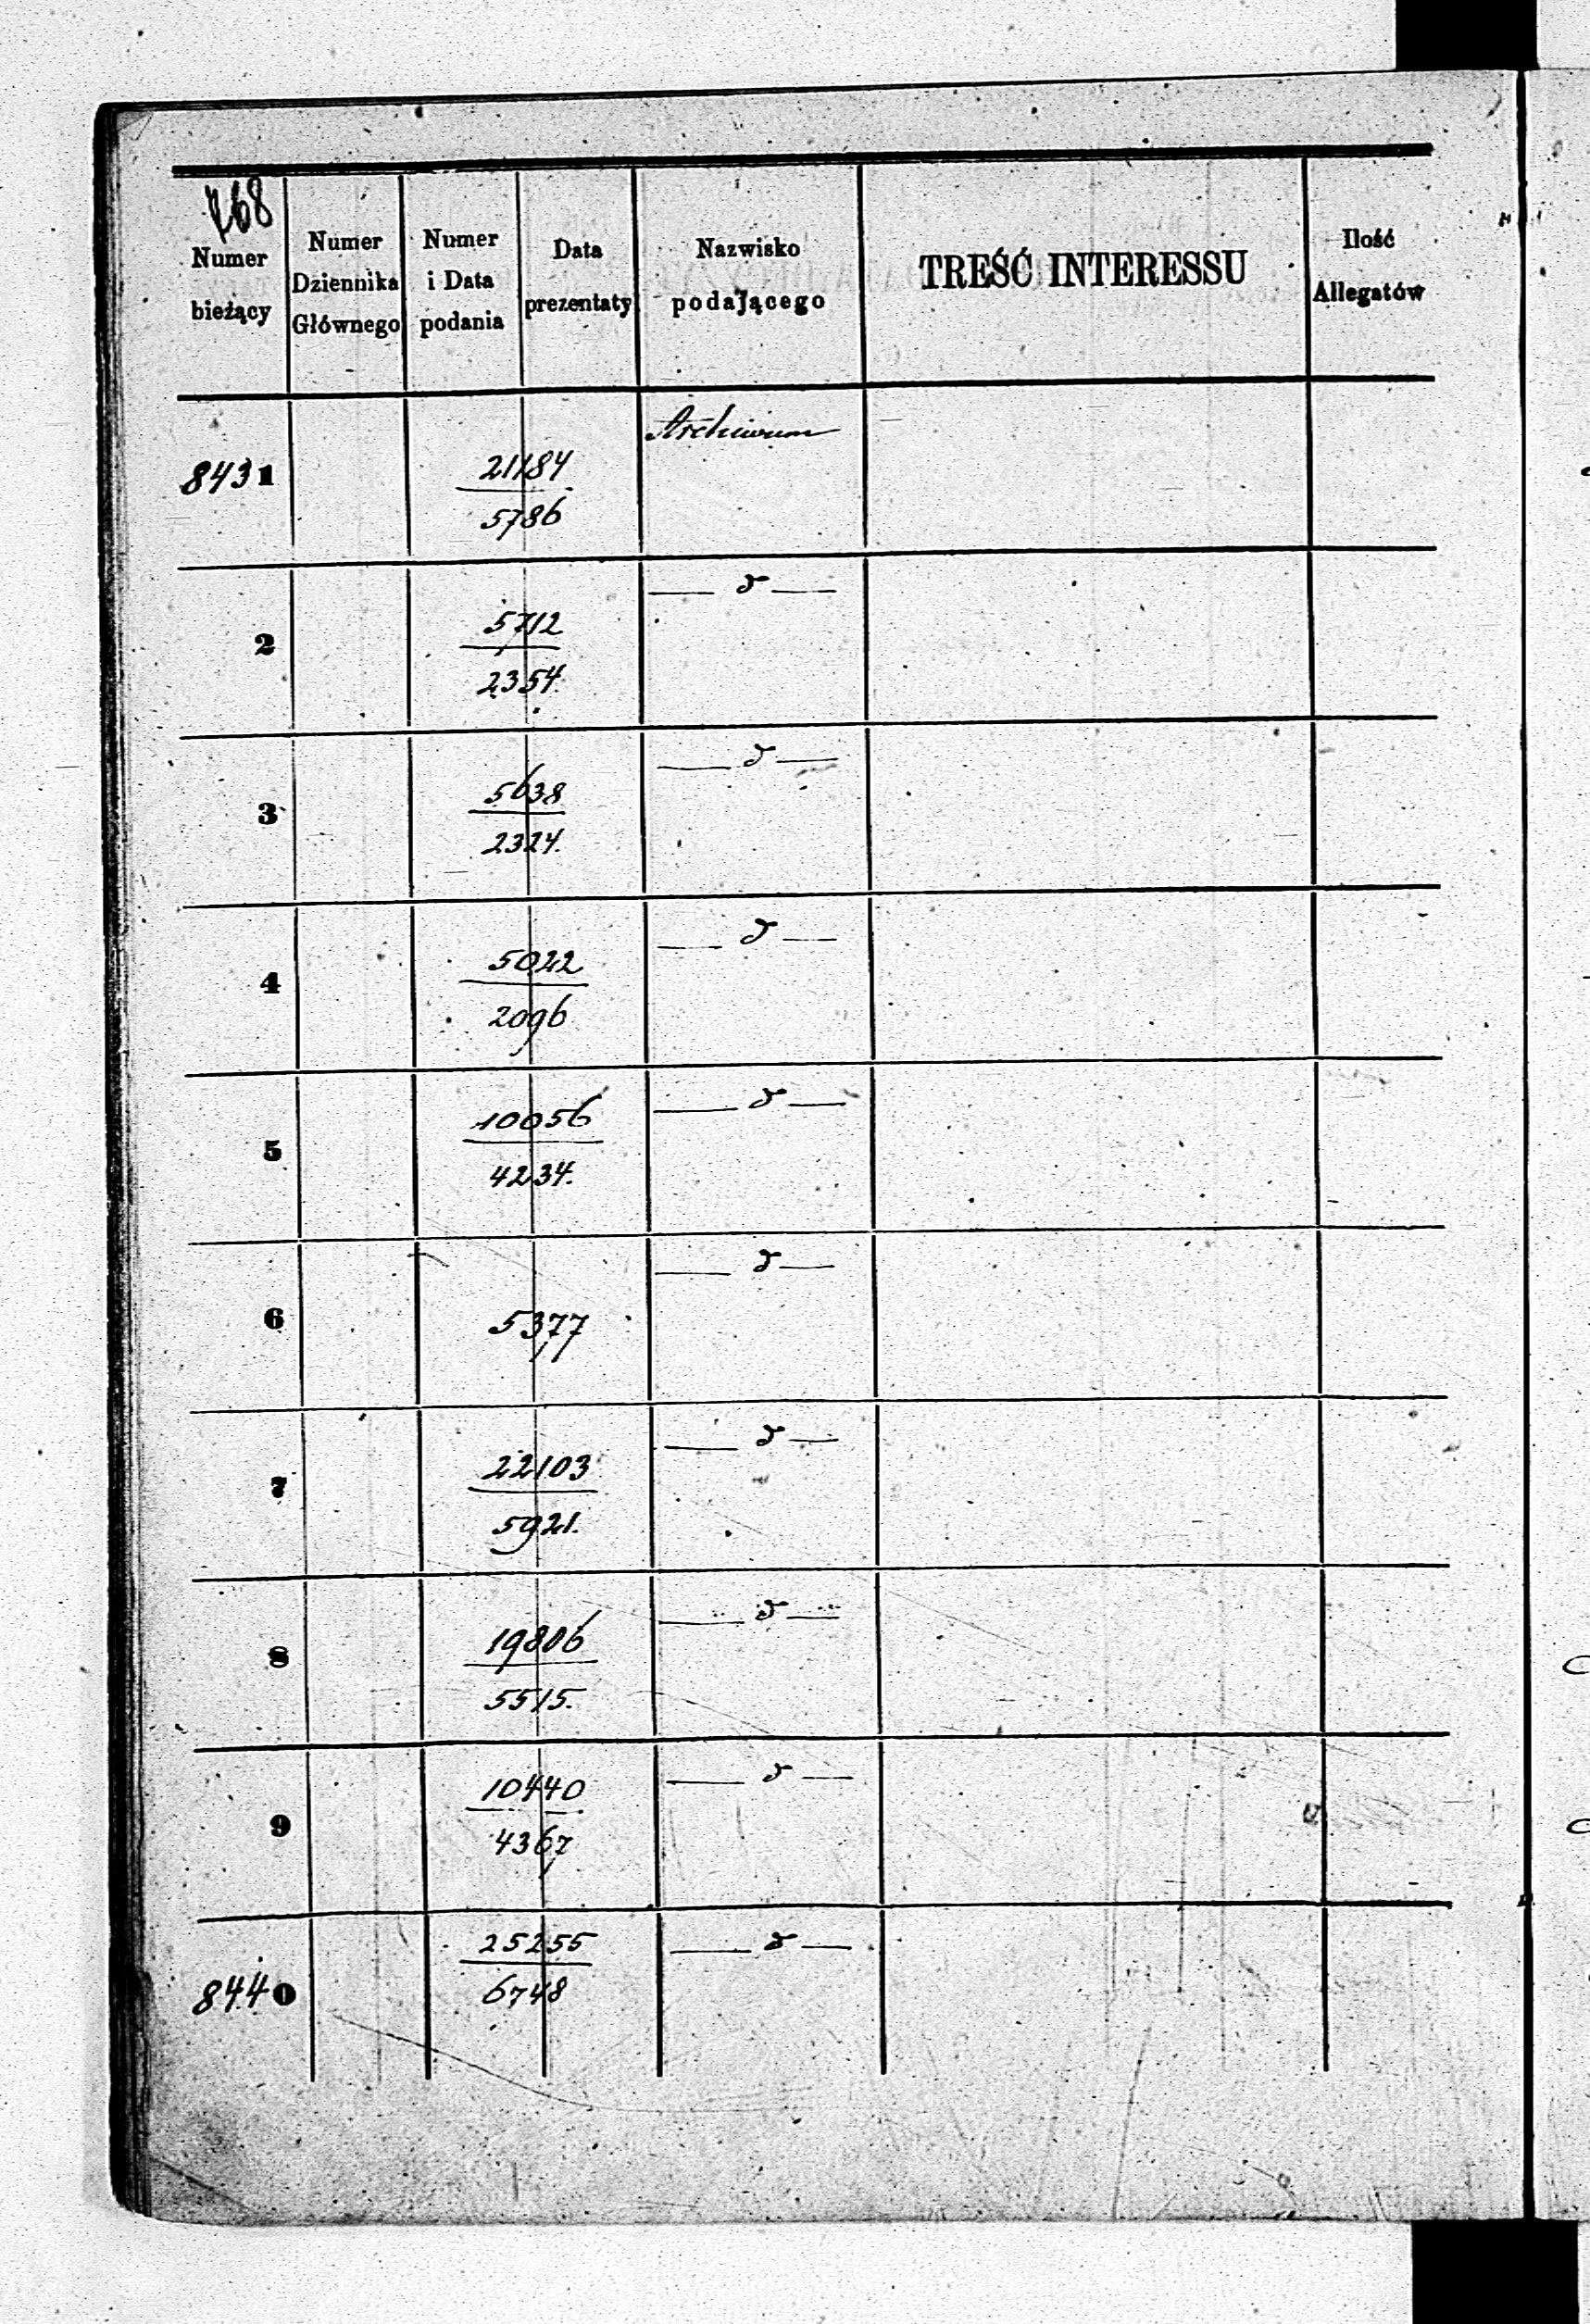 168
Numer bieżący
Numer Dziennika Głównego
Numer i Data podania
Data prezentaty
Nazwisko podającego
TREŚĆ INTERESSU
Ilość Allegatów
Archiwum
8431
21184
5786
— d —
2
5712
2354.
— d —
3
5638
2324.
— d —
4
5022
2096
— d —
5
10056
4234.
— d —
6
5377
— d —
7
22103
5921.
— d —
8
19806
5515.
— d —
9
10440
4367
— d —
8440
25255
6748